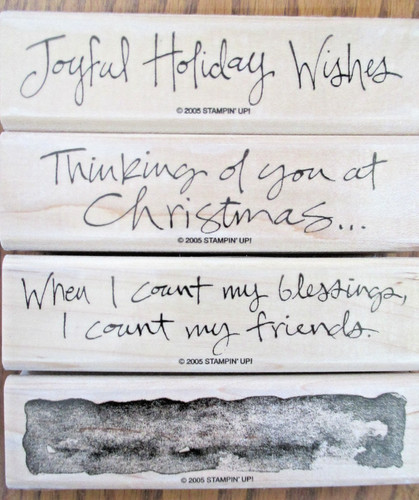 Joyful Holiday Wishes
© 2005 STAMPIN' UP!
Thinking of you at
Christmas...
© 2005 STAMPIN' UP!
When I count my blessings,
I count my friends.
© 2005 STAMPIN' UP!
© 2005 STAMPIN' UP!